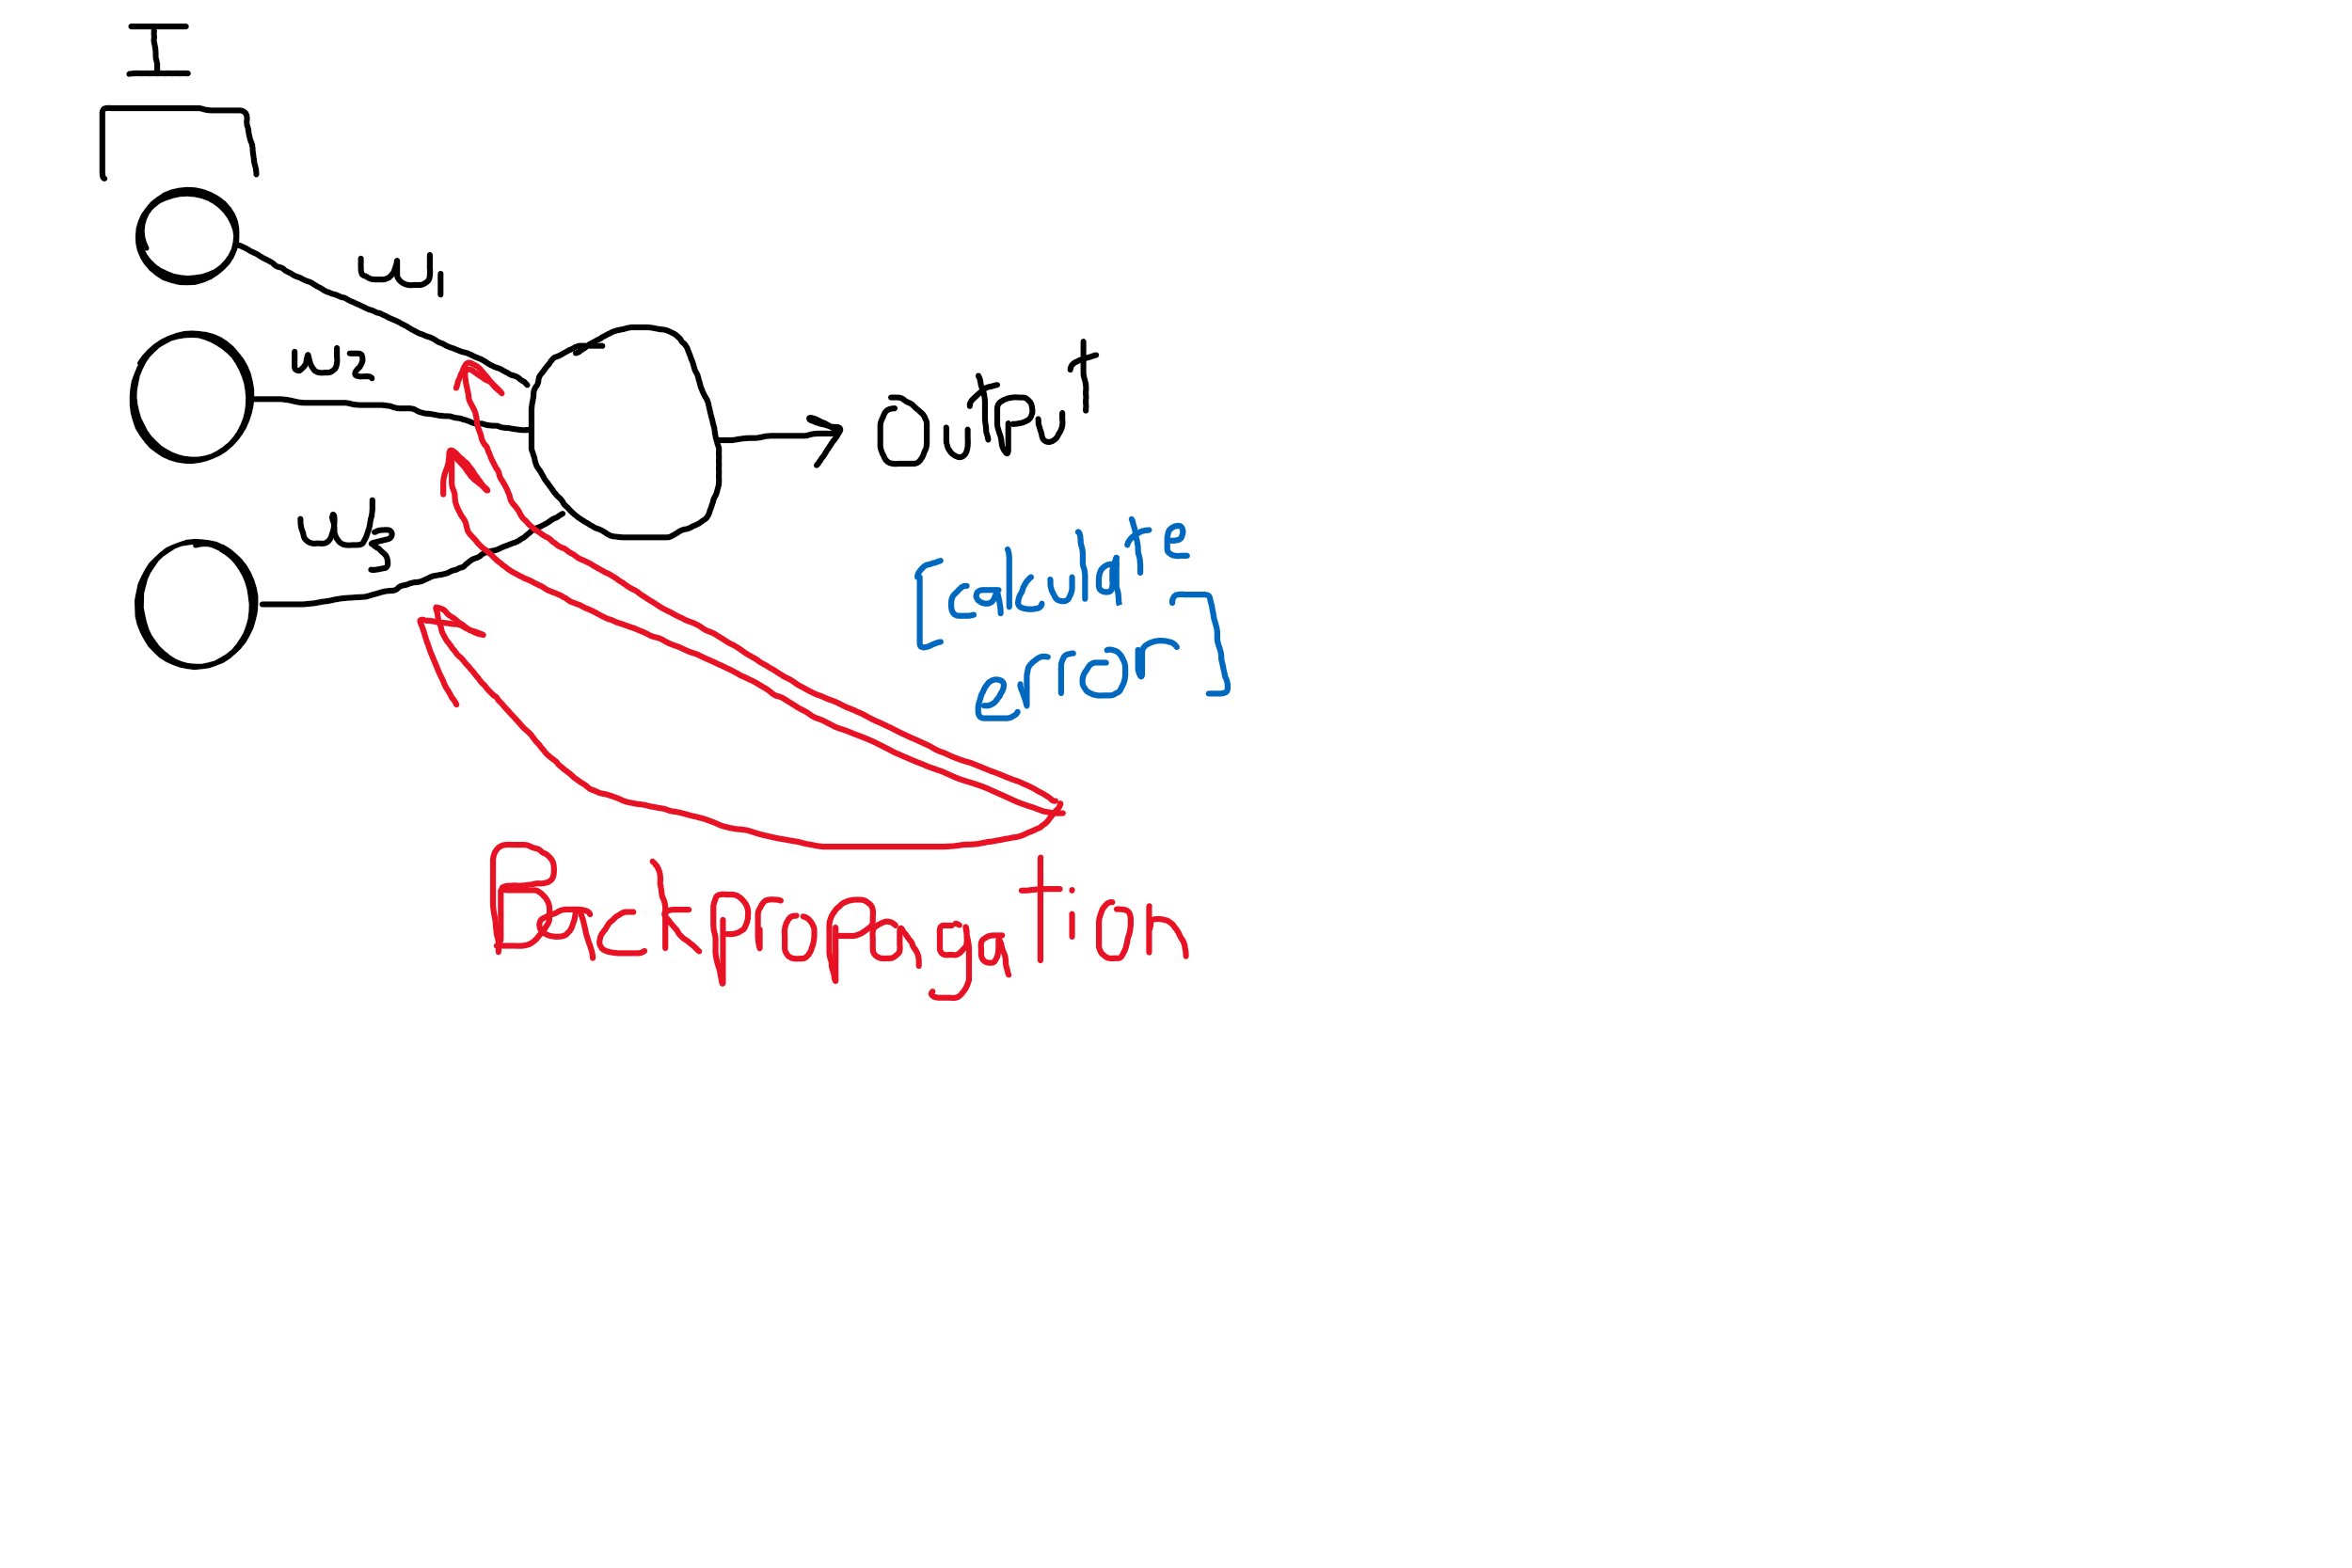 I
w1
w2
w3
Output
[calculate
error]
Backpropagation